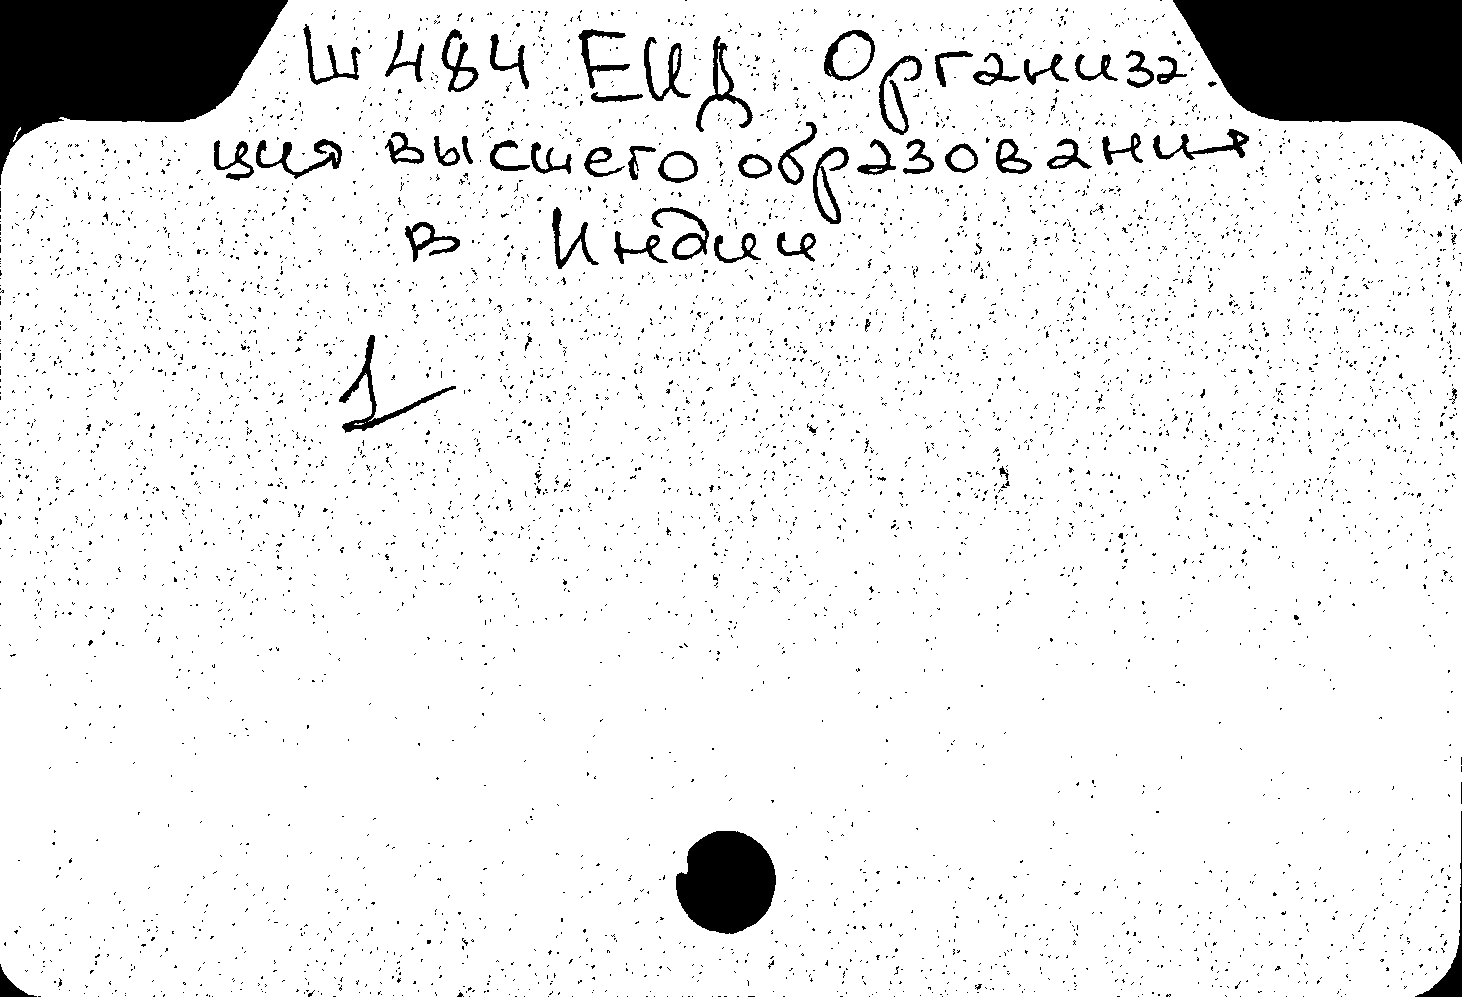 Ш484 ЕИД Организа
ция высшего образования
в Индии
1